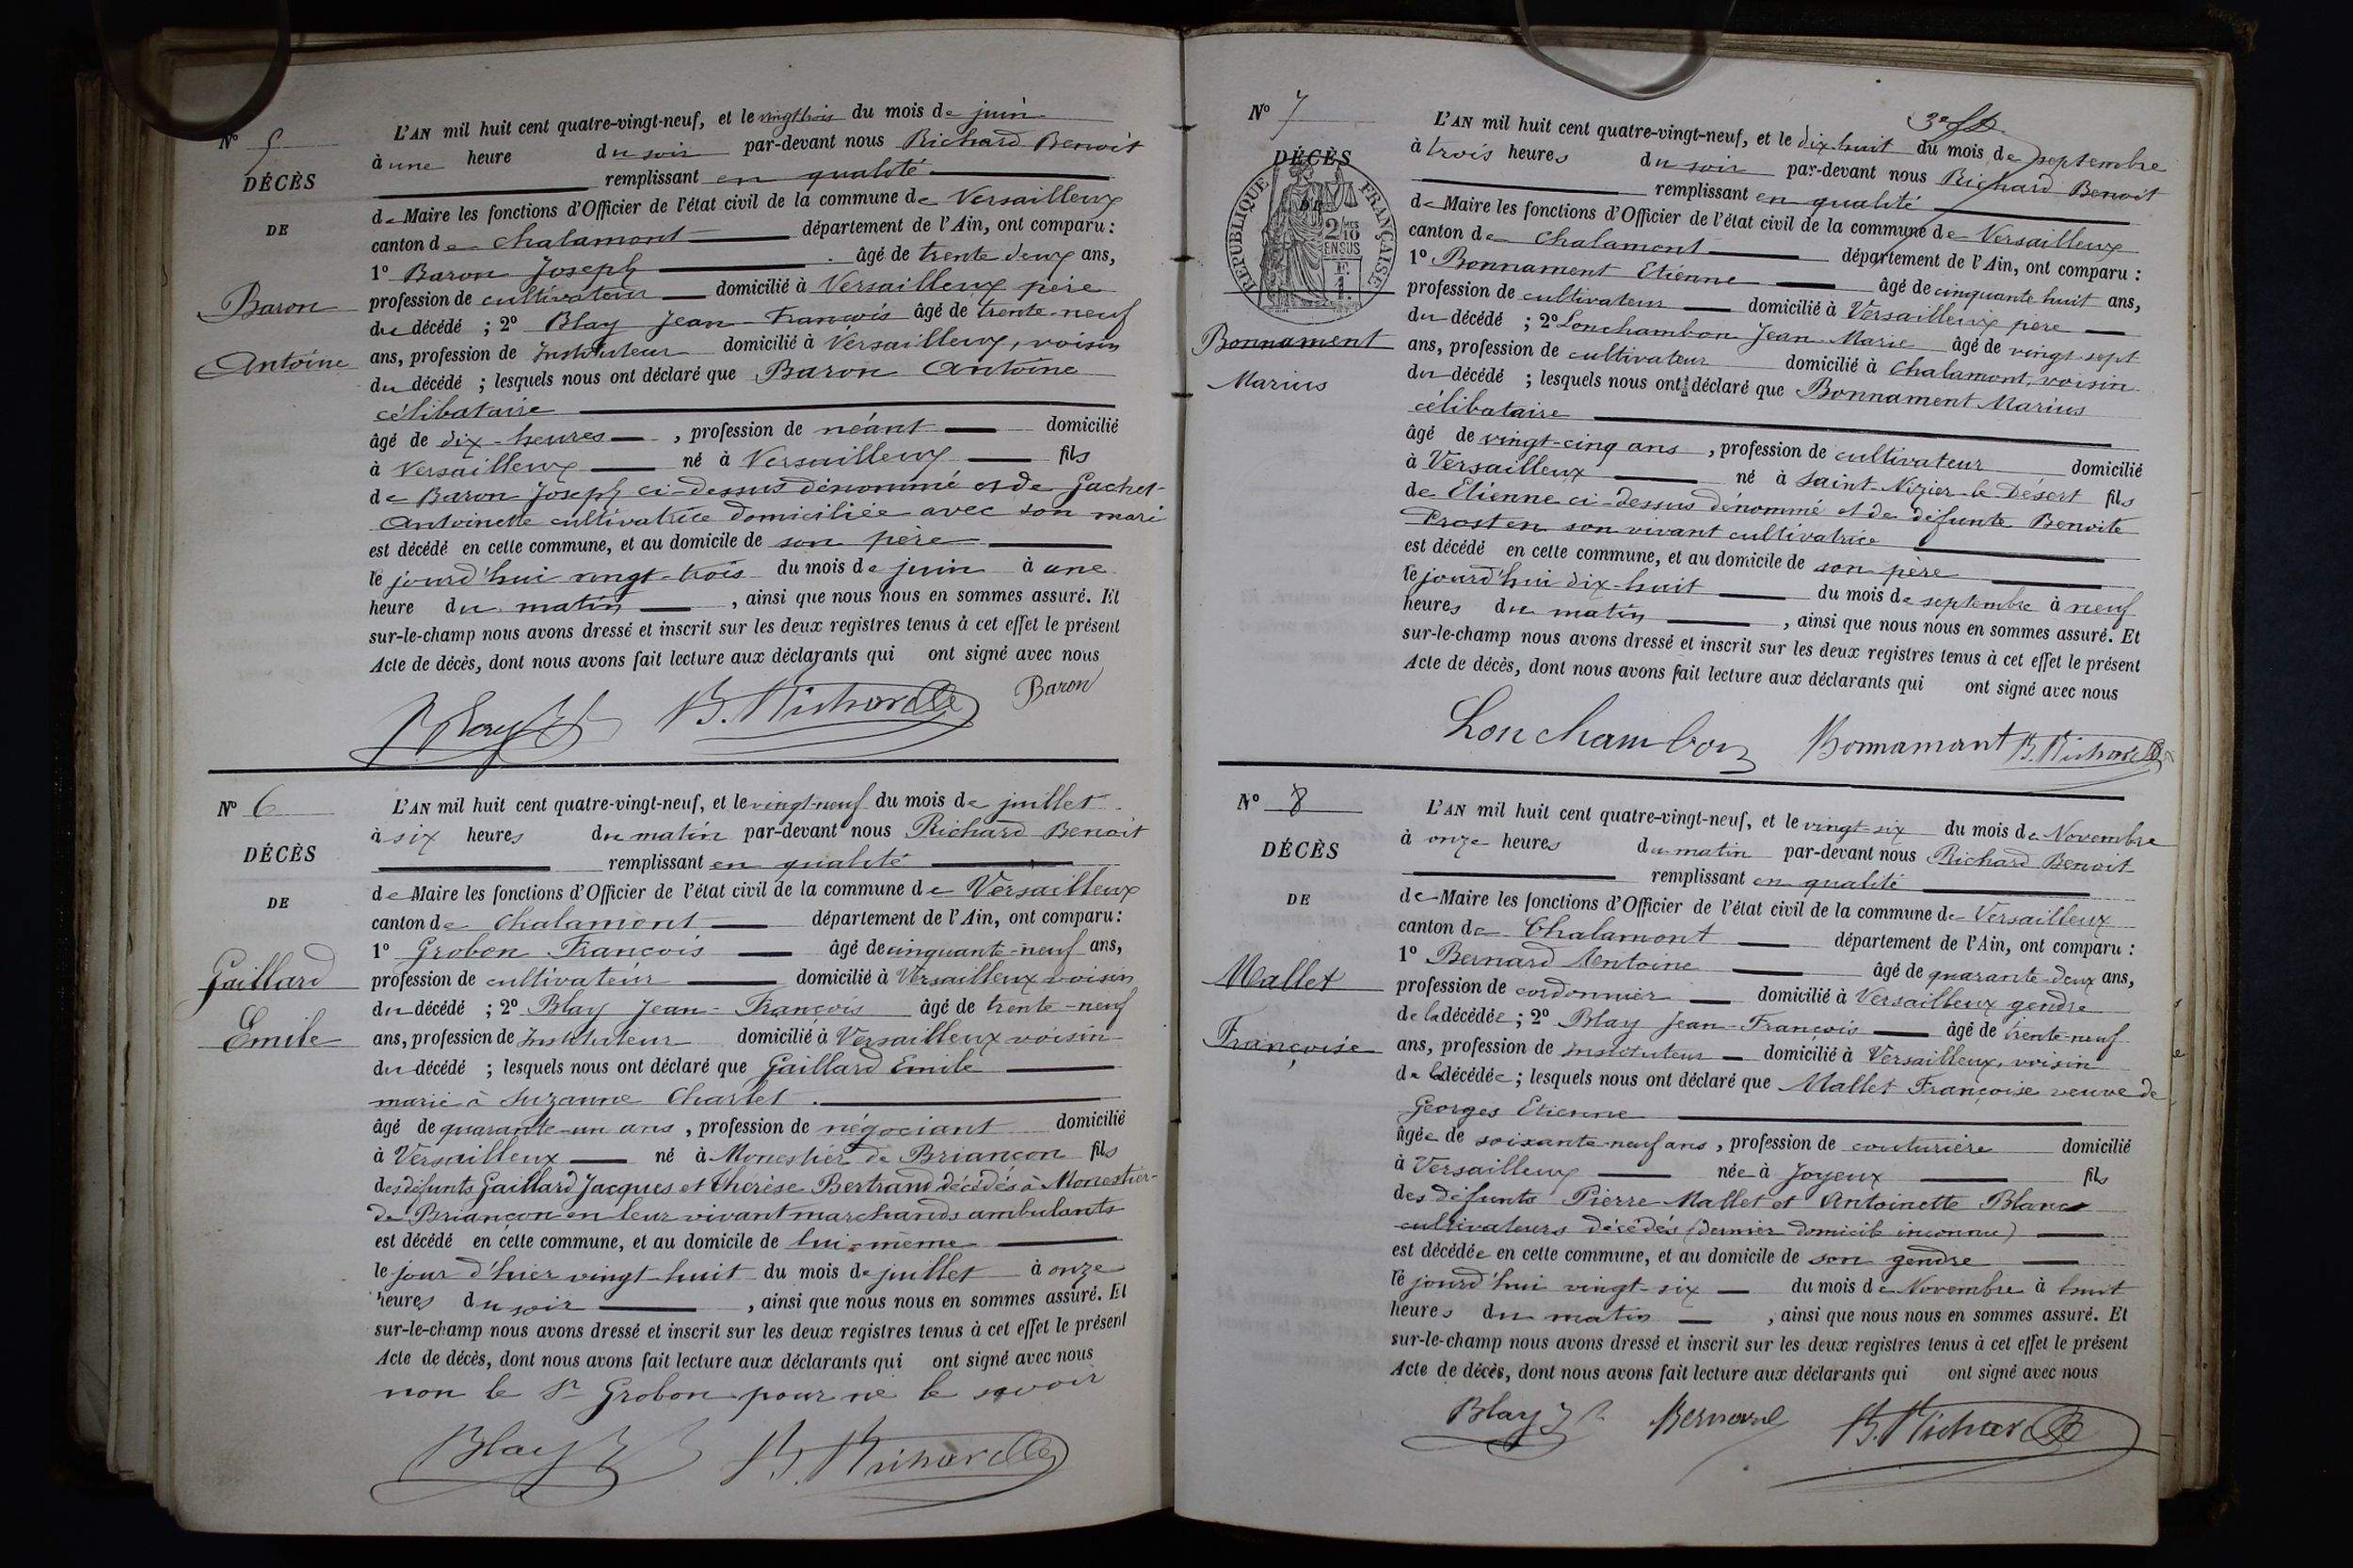 N° 5
DÉCÈS
DE
Baron
Antoine
L'AN mil huit cent quatre-vingt-neuf, et le vingt trois du mois de juin
à une heure du soir par-devant nous Richard Benoit
remplissant en qualité
de Maire les fonctions d'Officier de l'état civil de la commune de Versailleux
canton de Chalamont département de l'Ain, ont comparu :
1° Baron Joseph âgé de trente deux ans,
profession de cultivateur domicilié à Versailleux père
du décédé ; 2° Blay Jean-François âgé de trente-neuf
ans, profession de Instituteur domicilié à Versailleux, voisin
du décédé ; lesquels nous ont déclaré que Baron Antoine
célibataire
âgé de dix-heures, profession de néant domicilié
à Versailleux né à Versailleux fils
de Baron Joseph ci-dessus dénommé et de Gachet
Antoinette cultivatrice domiciliée avec son mari
est décédé en cette commune, et au domicile de son père
le jourd'hui vingt-trois du mois de juin à une
heure du matin, ainsi que nous nous en sommes assuré. Et
sur-le-champ nous avons dressé et inscrit sur les deux registres tenus à cet effet le présent
Acte de décès, dont nous avons fait lecture aux déclarants qui ont signé avec nous
Blay B. Richard Baron
N° 6
DÉCÈS
DE
Gaillard
Emile
L'AN mil huit cent quatre-vingt-neuf, et le vingt-neuf du mois de juillet
à six heures du matin par-devant nous Richard Benoit
remplissant en qualité
de Maire les fonctions d'Officier de l'état civil de la commune de Versailleux
canton de Chalamont département de l'Ain, ont comparu :
1° Grobon François âgé de cinquante-neuf ans,
profession de cultivateur domicilié à Versailleux voisin
du décédé ; 2° Blay Jean-François âgé de trente-neuf
ans, profession de Instituteur domicilié à Versailleux voisin
du décédé ; lesquels nous ont déclaré que Gaillard Emile
marié à Suzanne Charlet.
âgé de quarante-un ans, profession de négociant domicilié
à Versailleux né à Monestier de Briançon fils
des défunts Gaillard Jacques et Thérèse Bertrand décédés à Monestier-
de Briançon en leur vivant marchands ambulants
est décédé en cette commune, et au domicile de lui-même
le jour d'hier vingt-huit du mois de juillet à onze
heures du soir, ainsi que nous nous en sommes assuré. Et
sur-le-champ nous avons dressé et inscrit sur les deux registres tenus à cet effet le présent
Acte de décès, dont nous avons fait lecture aux déclarants qui ont signé avec nous
non le Sr Grobon pour ne le savoir
Blay B. Richard
3e
N° 7
DÉCÈS
DE
RÉPUBLIQUE FRANÇAISE
2/10 EN SUS
Bonnament
Marius
L'AN mil huit cent quatre-vingt-neuf, et le dix-huit du mois de septembre
à trois heures du soir par-devant nous Richard Benoit
remplissant en qualité
de Maire les fonctions d'Officier de l'état civil de la commune de Versailleux
canton de Chalamont département de l'Ain, ont comparu :
1° Bonnament Etienne âgé de cinquante huit ans,
profession de cultivateur domicilié à Versailleux père
du décédé ; 2° Lonchambon Jean-Marie âgé de vingt-sept
ans, profession de cultivateur domicilié à Chalamont, voisin
du décédé ; lesquels nous ont déclaré que Bonnament Marius
célibataire
âgé de vingt-cinq ans, profession de cultivateur domicilié
à Versailleux né à Saint-Nizier-le-Désert fils
de Etienne ci-dessus dénommé et de défunte Benoite
Prost en son vivant cultivatrice
est décédé en cette commune, et au domicile de son père
le jourd'hui dix-huit du mois de septembre à neuf
heures du matin, ainsi que nous nous en sommes assuré. Et
sur-le-champ nous avons dressé et inscrit sur les deux registres tenus à cet effet le présent
Acte de décès, dont nous avons fait lecture aux déclarants qui ont signé avec nous
Lonchambon Bonnamant B. Richard
N° 8
DÉCÈS
DE
Mallet
Françoise
L'AN mil huit cent quatre-vingt-neuf, et le vingt-six du mois de Novembre
à onze heures du matin par-devant nous Richard Benoit
remplissant en qualité
de Maire les fonctions d'Officier de l'état civil de la commune de Versailleux
canton de Chalamont département de l'Ain, ont comparu :
1° Bernard Antoine âgé de quarante-deux ans,
profession de cordonnier domicilié à Versailleux gendre
de la décédée ; 2° Blay Jean-François âgé de trente-neuf
ans, profession de instituteur domicilié à Versailleux, voisin
de la décédée ; lesquels nous ont déclaré que Mallet Françoise veuve de
Georges Etienne
âgée de soixante-neuf ans, profession de couturière domicilié
à Versailleux née à Joyeux fils
des défunts Pierre Mallet et Antoinette Blanc
cultivateurs décédés (dernier domicile inconnu)
est décédée en cette commune, et au domicile de son gendre
le jourd'hui vingt-six du mois de Novembre à huit
heures du matin, ainsi que nous nous en sommes assuré. Et
sur-le-champ nous avons dressé et inscrit sur les deux registres tenus à cet effet le présent
Acte de décès, dont nous avons fait lecture aux déclarants qui ont signé avec nous
Blay Bernard B. Richard